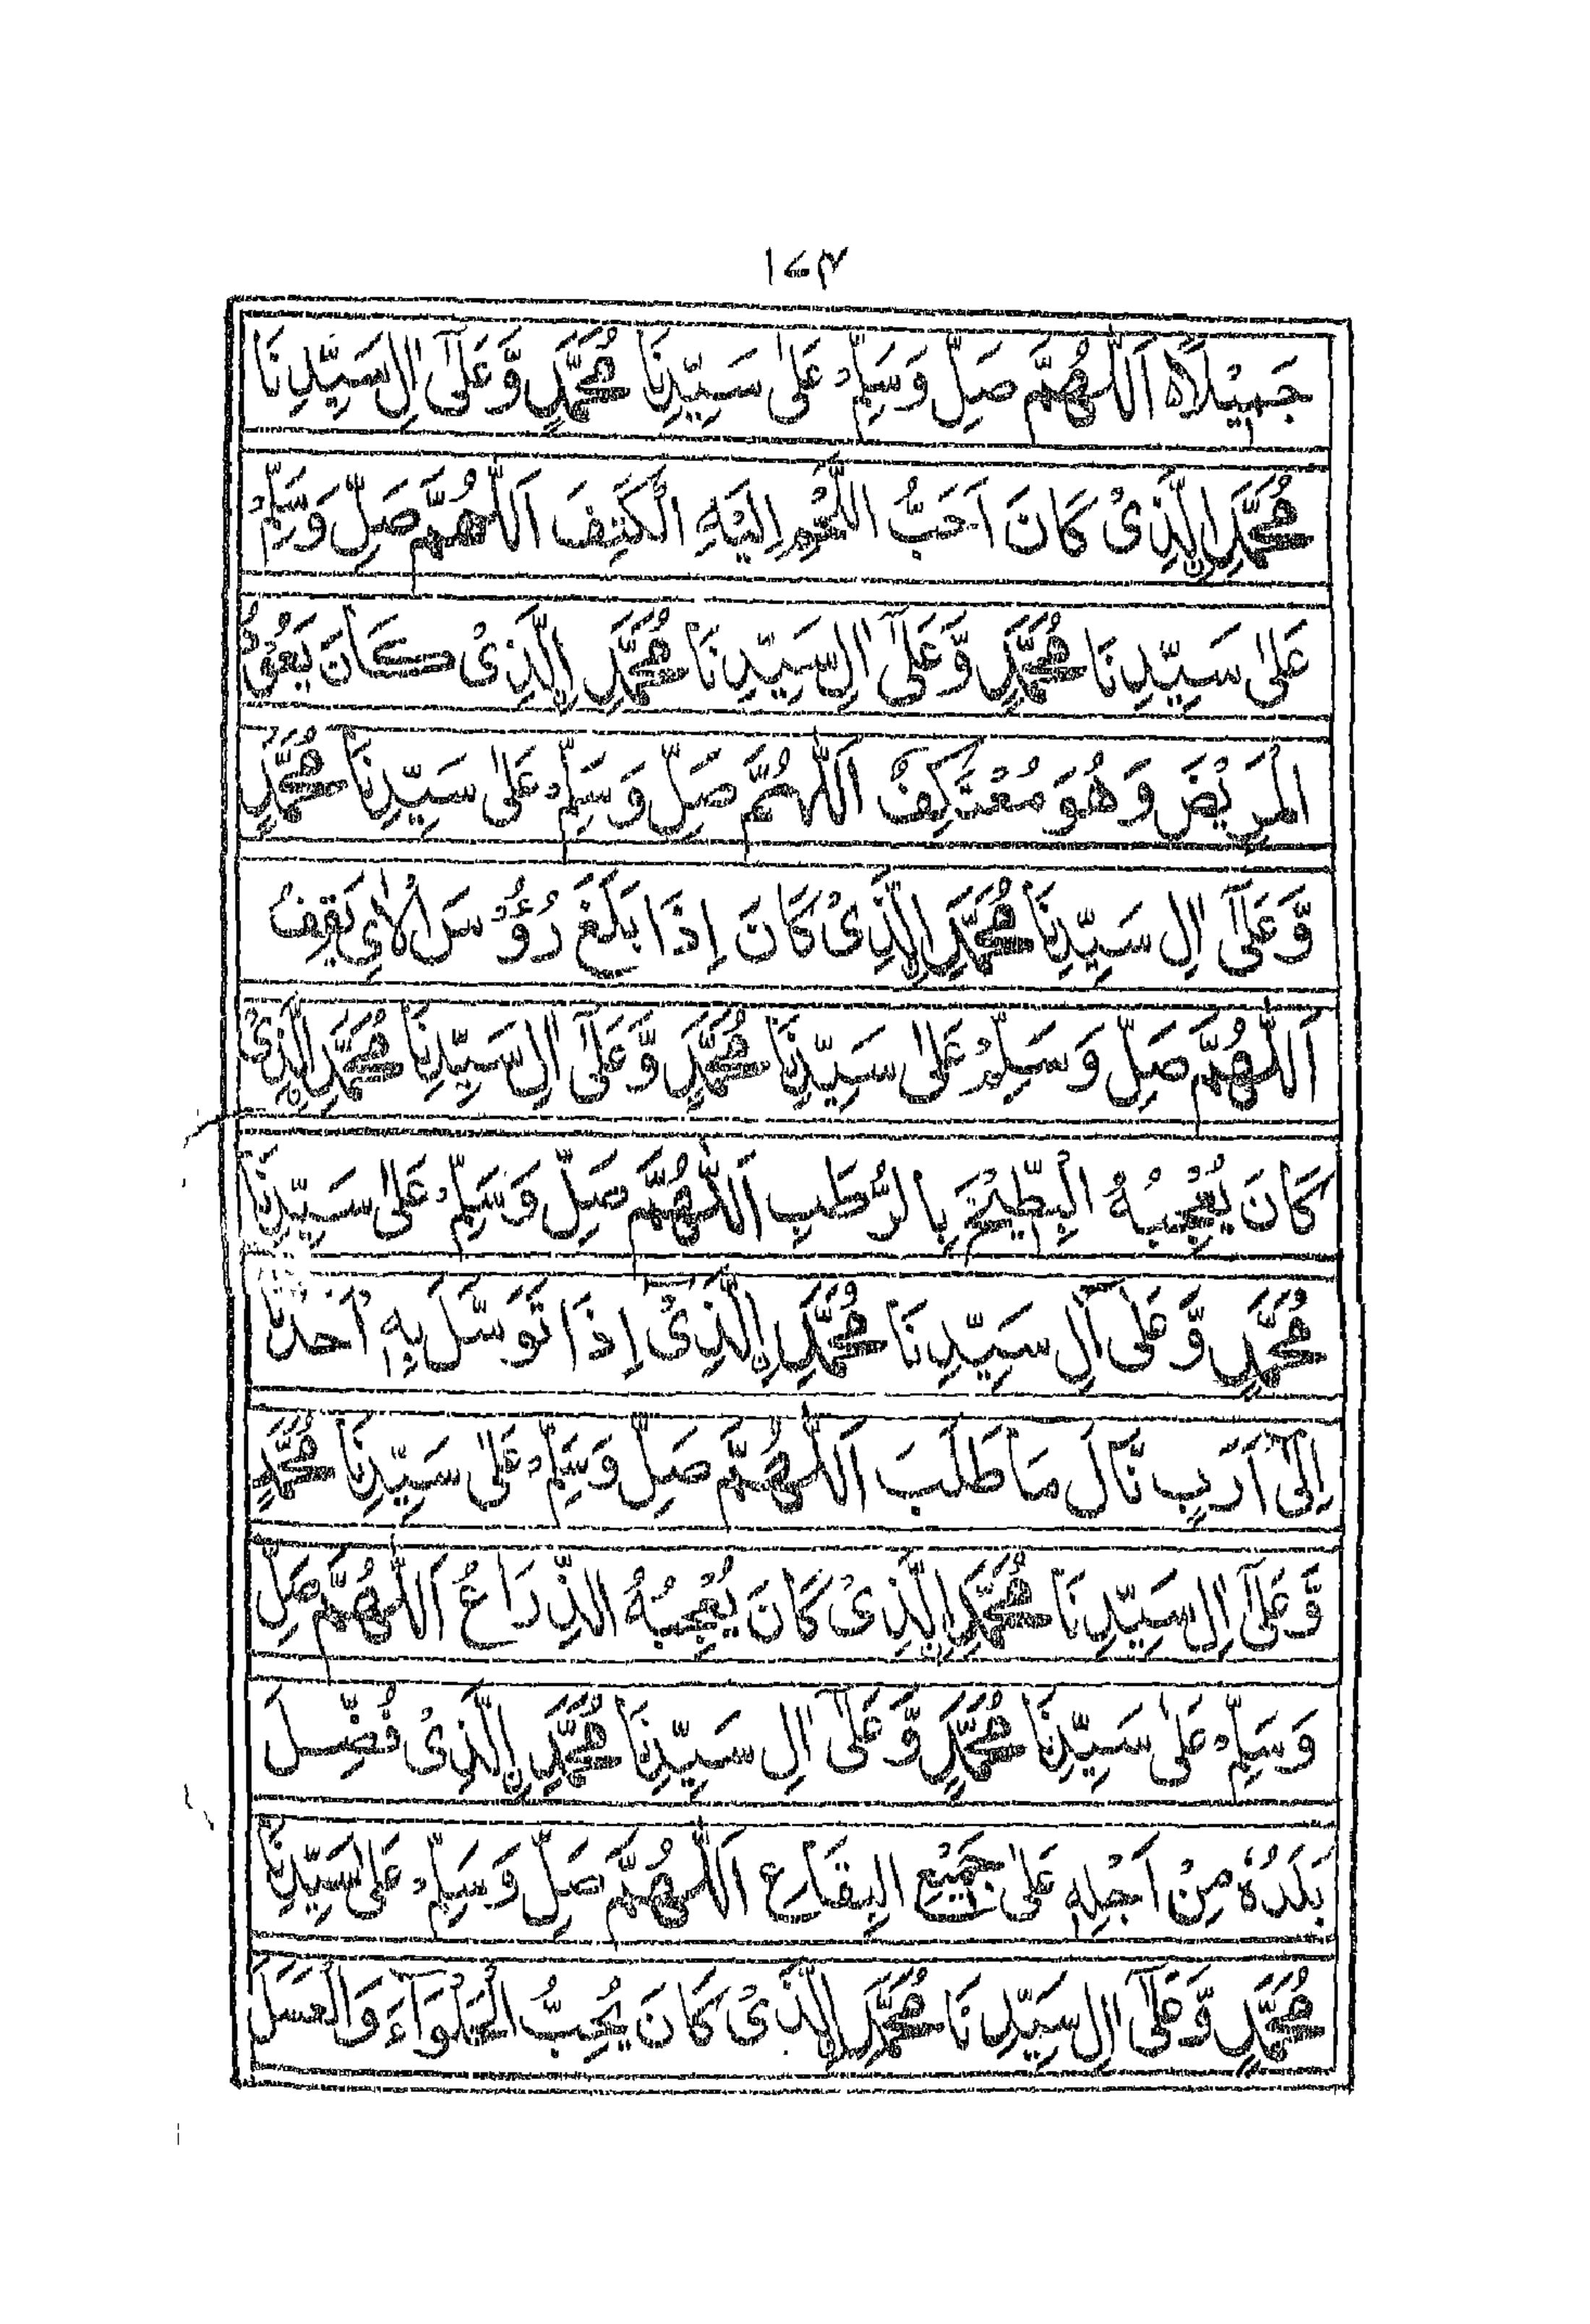 ۱۷۴
جَمِيْلًا۝ اَللّٰهُمَّ صَلِّ وَسَلِّمْ عَلٰى سَيِّدِنَا مُحَمَّدٍ وَّعَلٰٓى اٰلِ سَيِّدِنَا
مُحَمَّدِ ڹِالَّذِىْ كَانَ اَحَبُّ اللَّحْمِ اِلَيْهِ الْكَتِفَ اَللّٰهُمَّ صَلِّ وَسَلِّمْ
عَلٰى سَيِّدِنَا مُحَمَّدٍ وَّعَلٰٓى اٰلِ سَيِّدِنَا مُحَمَّدِ ڹِالَّذِىْ كَانَ يَعُوْدُ
الْمَرِيْضَ وَهُوَ مُعْتَكِفٌ اَللّٰهُمَّ صَلِّ وَسَلِّمْ عَلٰى سَيِّدِنَا مُحَمَّدٍ
وَّعَلٰٓى اٰلِ سَيِّدِنَا مُحَمَّدِ ڹِالَّذِىْ كَانَ اِذَا بَلَغَ رُؤُوْسَ الْاٰىِ يَقِفُ
اَللّٰهُمَّ صَلِّ وَسَلِّمْ عَلٰى سَيِّدِنَا مُحَمَّدٍ وَّعَلٰٓى اٰلِ سَيِّدِنَا مُحَمَّدِ ڹِالَّذِىْ
كَانَ يُعْجِبُهُ الْبِطِّيْخُ بِالرُّطَبِ اَللّٰهُمَّ صَلِّ وَسَلِّمْ عَلٰى سَيِّدِنَا
مُحَمَّدٍ وَّعَلٰٓى اٰلِ سَيِّدِنَا مُحَمَّدِ ڹِالَّذِىْ اِذَا تَوَسَّلَ بِهٖ اَحَدُنَا
اِلٰٓى اَرَبٍ نَّالَ مَا طَلَبَ اَللّٰهُمَّ صَلِّ وَسَلِّمْ عَلٰى سَيِّدِنَا مُحَمَّدٍ
وَّعَلٰٓى اٰلِ سَيِّدِنَا مُحَمَّدِ ڹِالَّذِىْ كَانَ يُعْجِبُهُ الذِّرَاعُ اَللّٰهُمَّ صَلِّ
وَسَلِّمْ عَلٰى سَيِّدِنَا مُحَمَّدٍ وَّعَلٰٓى اٰلِ سَيِّدِنَا مُحَمَّدِ ڹِالَّذِىْ فُضِّلَ
بَلَدُهٗ مِنْ اَجْلِهٖ عَلٰى جَمِيْعِ الْبِقَاعِ اَللّٰهُمَّ صَلِّ وَسَلِّمْ عَلٰى سَيِّدِنَا
مُحَمَّدٍ وَّعَلٰٓى اٰلِ سَيِّدِنَا مُحَمَّدِ ڹِالَّذِىْ كَانَ يُحِبُّ الْحَلْوَآءَ وَالْعَسَلَ